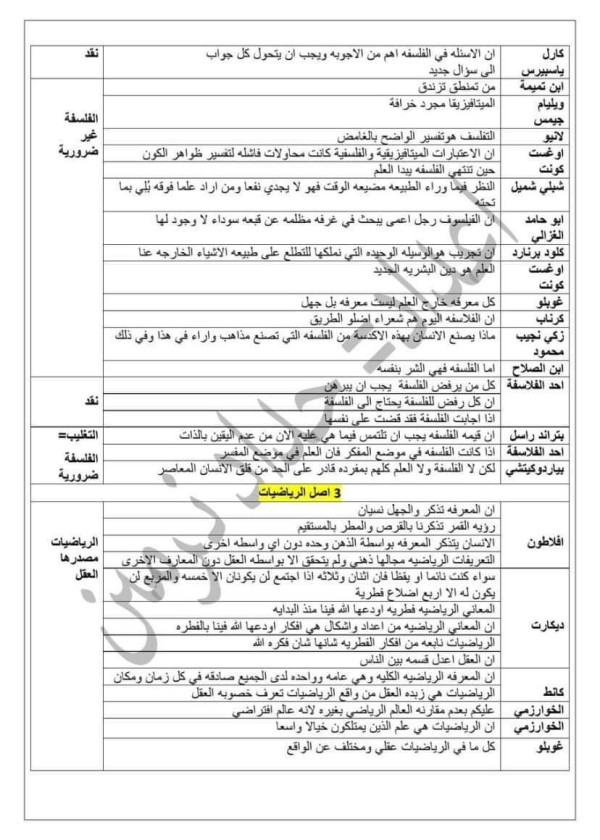 كارل ياسبيرس
ان الاسئله في الفلسفه اهم من الاجوبه ويجب ان يتحول كل جواب
الى سؤال جديد
نقد
ابن تميمة
من تمنطق تزندق
ويليام جيمس
الميتافيزيقا مجرد خرافة
لانيو
التفلسف هوتفسير الواضح بالغامض
اوغست كونت
ان الاعتبارات الميتافيزيقية والفلسفية كانت محاولات فاشله لتفسير ظواهر الكون
حين تنتهي الفلسفه يبدا العلم
شبلي شميل
النظر فيما وراء الطبيعه مضيعه الوقت فهو لا يجدي نفعا ومن اراد علما فوقه بُلي بما
تحته
ابو حامد الغزالي
ان الفيلسوف رجل اعمى يبحث في غرفه مظلمه عن قبعه سوداء لا وجود لها
كلود برنارد
ان تجريب هوالوسيله الوحيده التي نملكها للتطلع على طبيعه الاشياء الخارجه عنا
اوغست كونت
العلم هو دين البشريه الجديد
غوبلو
كل معرفه خارج العلم ليست معرفه بل جهل
كرناب
ان الفلاسفه اليوم هم شعراء اضلو الطريق
زكي نجيب محمود
ماذا يصنع الانسان بهذه الاكدسة من الفلسفه التي تصنع مذاهب واراء في هذا وفي ذلك
ابن الصلاح
اما الفلسفه فهي الشر بنفسه
الفلسفة
غير
ضرورية
احد الفلاسفة
كل من يرفض الفلسفة يجب ان يبرهن
ان كل رفض للفلسفة يحتاج الى الفلسفة
اذا اجابت الفلسفة فقد قضت على نفسها
نقد
بتراند راسل
ان قيمه الفلسفه يجب ان تلتمس فيما هي عليه الان من عدم اليقين بالذات
احد الفلاسفة
اذا كانت الفلسفه في موضع المفكر فان العلم في موضع المفسر
بياردوكيتشي
لكن لا الفلسفة ولا العلم كلهم بمفرده قادر على الحد من قلق الانسان المعاصر
التغليب=
الفلسفة
ضرورية
3 اصل الرياضيات
افلاطون
ان المعرفه تذكر والجهل نسيان
رؤيه القمر تذكرنا بالقرص والمطر بالمستقيم
الانسان يتذكر المعرفه بواسطة الذهن وحده دون اي واسطه اخرى
التعريفات الرياضيه مجالها ذهني ولم يتحقق الا بواسطه العقل دون المعارف الاخرى
ديكارت
سواء كنت نائما او يقظا فان اثنان وثلاثه اذا اجتمع لن يكونان الا خمسه والمربع لن
يكون له الا اربع اضلاع فطرية
المعاني الرياضيه فطريه اودعها الله فينا منذ البدايه
ان المعاني الرياضيه من اعداد واشكال هي افكار اودعها الله فينا بالفطره
الرياضيات نابعه من افكار الفطريه شانها شان فكره الله
ان العقل اعدل قسمه بين الناس
كانط
ان المعرفه الرياضيه الكليه وهي عامه وواحده لدى الجميع صادقه في كل زمان ومكان
الرياضيات هي زبده العقل من واقع الرياضيات تعرف خصوبه العقل
الخوارزمي
عليكم بعدم مقارنه العالم الرياضي بغيره لانه عالم افتراضي
الخوارزمي
ان الرياضيات هي علم الذين يمتلكون خيالا واسعا
غوبلو
كل ما في الرياضيات عقلي ومختلف عن الواقع
الرياضيات
مصدرها
العقل